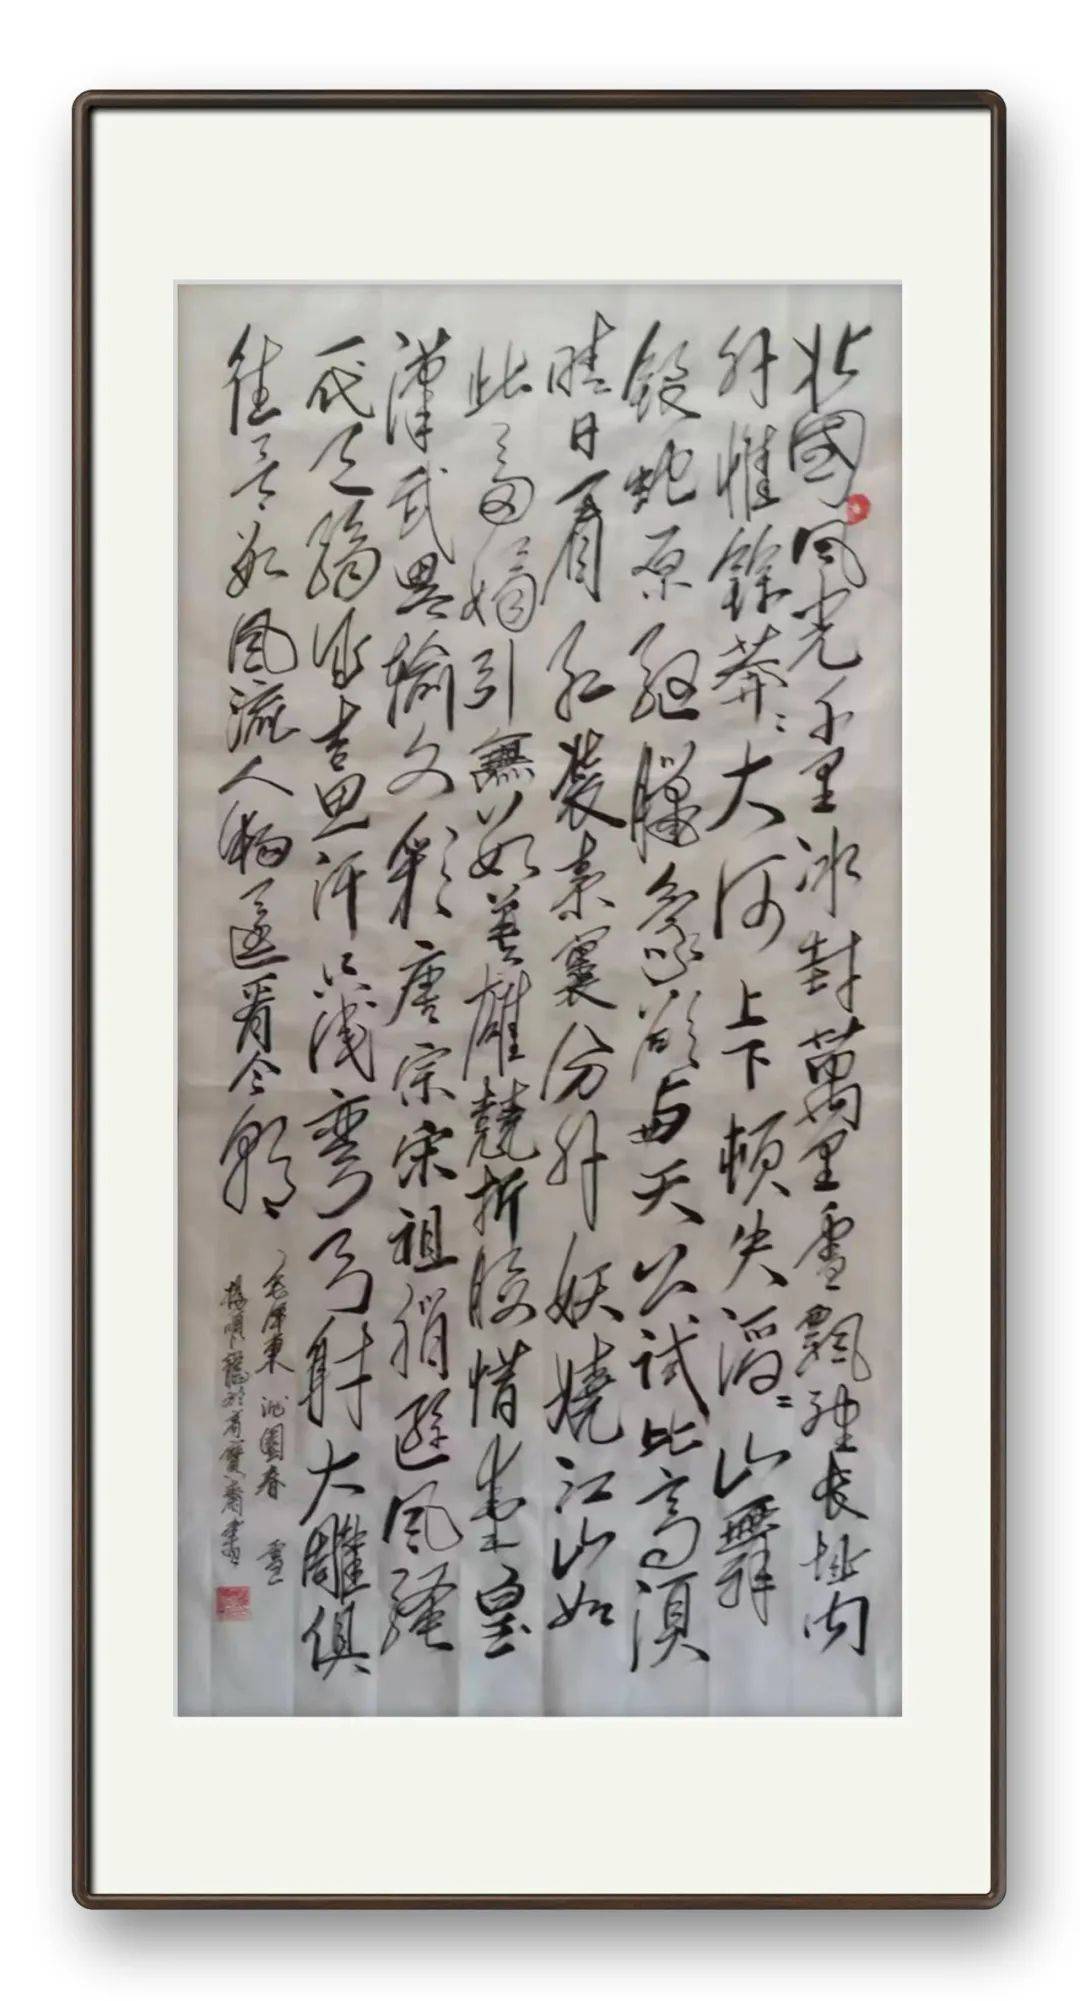 北國風光千里冰封萬里雪飄望長城內
外惟餘莽〻大河上下頓失滔〻山舞
銀蛇原馳臘象欲與天公試比高須
晴日看紅裝素裹分外妖嬈江山如
此多嬌引無數英雄競折腰惜秦皇
漢武略輸文彩唐宗宋祖稍遜風騷
一代天驕成吉思汗只識彎弓射大雕俱
往矣數風流人物還看今朝
毛澤東 沁園春 雪
楊順 於 寶齋書